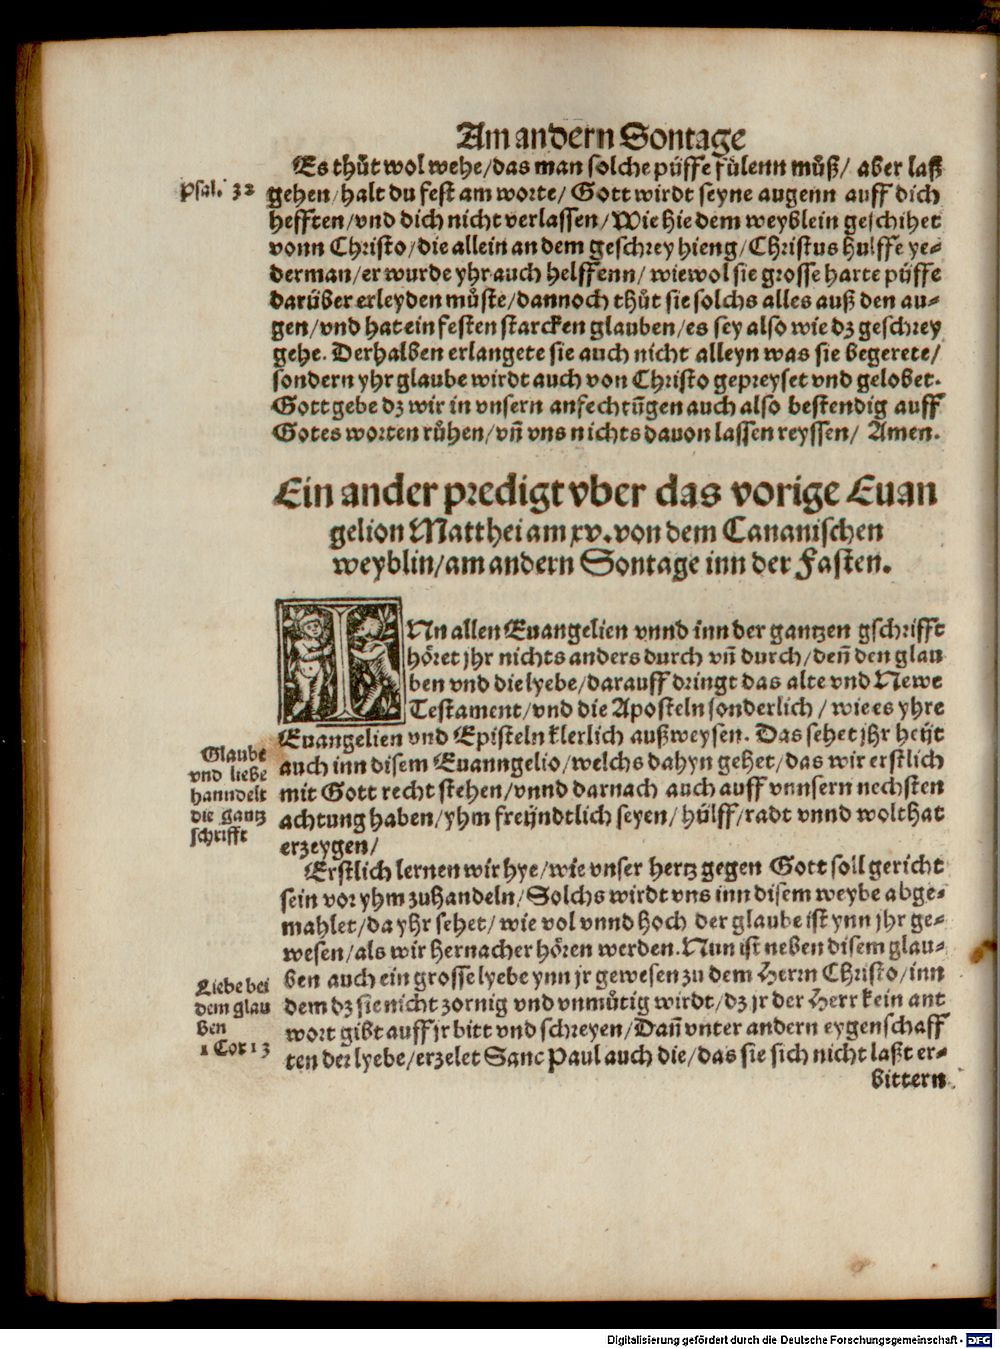 Am andern Sontage
Es thůt wol wehe/das man solche püffe fülenn můß/ aber laß
Psal. 32
gehen/halt du fest am worte/ Gott wirdt seyne augenn auff dich
hefften/vnd dich nicht verlassen/Wie hie dem weyblein geschihet
vonn Christo/die allein an dem geschrey hieng/Christus hulffe ye-
derman/er wurde yhr auch helffenn/ wiewol sie grosse harte püffe
darüber erleyden můste/dannoch thůt sie solchs alles auß den au-
gen/vnd hat ein festen starcken glauben/es sey also wie dz geschrey
gehe. Derhalben erlangete sie auch nicht alleyn was sie begerete/
sondern yhr glaube wirdt auch von Christo gepreyset vnd gelobet.
Gott gebe dz wir in vnsern anfechtũgen auch also bestendig auff
Gotes worten růhen/vñ vns nichts dauon lassen reyssen/ Amen.
Ein ander predigt vber das vorige Euan
gelion Matthei am xv. von dem Cananischen
weyblin/am andern Sontage inn der Fasten.
INn allen Euangelien vnnd inn der gantzen gschrifft
höret jhr nichts anders durch vñ durch/deñ den glau
ben vnd die lyebe/darauff dringt das alte vnd Newe
Testament/vnd die Aposteln sonderlich/ wie es yhre
Euangelien vnd Episteln klerlich außweysen. Das sehet jhr heüt
auch inn disem Euanngelio/welchs dahyn gehet/das wir erstlich
mit Gott recht stehen/vnnd darnach auch auff vnnsern nechsten
achtung haben/yhm freündtlich seyen/hülff/radt vnnd wolthat
erzeygen/
Glaube
vnd liebe
hanndelt
die gantz
schrifft
Erstlich lernen wir hye/wie vnser hertz gegen Gott soll gericht
sein vor yhm zuhandeln/Solchs wirdt vns inn disem weybe abge-
mahlet/da yhr sehet/ wie vol vnnd hoch der glaube ist ynn jhr ge-
wesen/als wir hernacher hören werden. Nun ist neben disem glau-
ben auch ein grosse lyebe ynn jr gewesen zu dem Herrn Christo/inn
dem dz sie nicht zornig vnd vnmůtig wirdt/dz jr der Herr kein ant
wort gibt auff jr bitt vnd schreyen/Dañ vnter andern eygenschaff
ten der lyebe/erzelet Sanc Paul auch die/das sie sich nicht laßt er-
bittern
Liebe bei
dem glau
ben
1 Cor 13
Digitalisierung gefördert durch die Deutsche Forschungsgemeinschaft - DFG